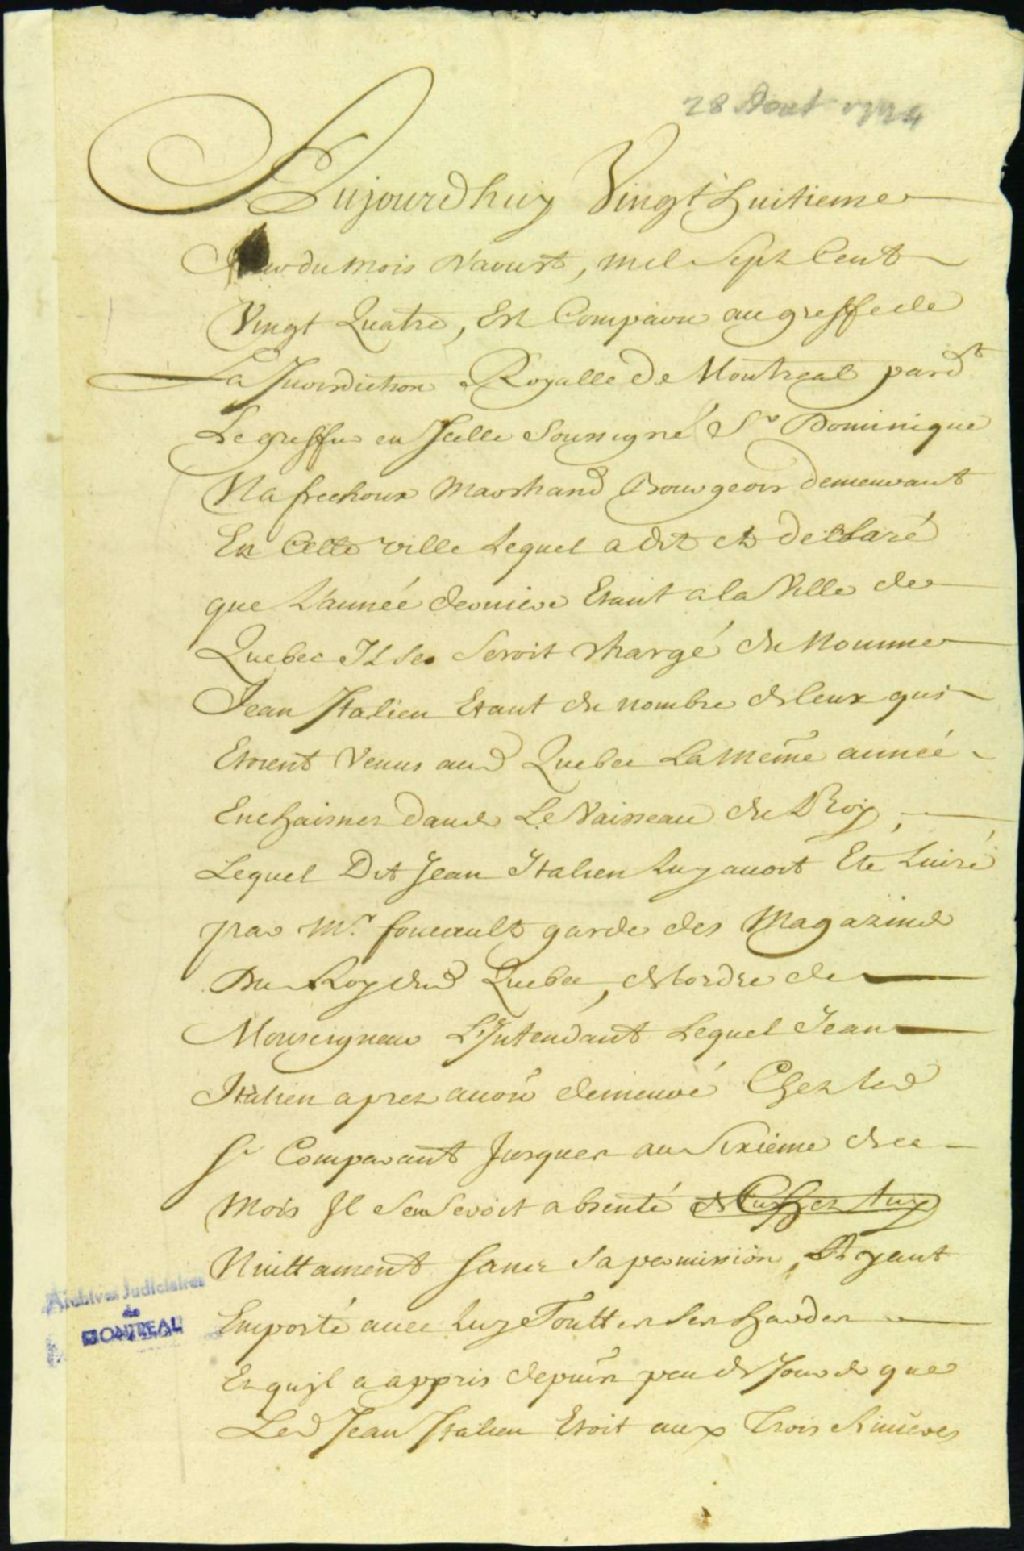 28 Aout 1724
Aujourdhuy Vingt huitieme
Jour du mois d'aoust, mil sept Cent
Vingt Quatre, Est Comparu au greffe de
La Jurisdiction Royalle de Montreal pard.t
Le greffier en Jcelle Soussigné S.r Dominique
Nafrechoux Marchand Bourgeois demeurant
En Cette ville Lequel a dit et declaré
que L'année derniere Etant a la Ville de
Quebec Il se seroit chargé du Nommé
Jean Italien Etant du nombre de Ceux qui
Etoient Venus aud Quebec La Même année
Enchaisnez dans Le Vaisseau du Roy,
Lequel Dit Jean Italien Luy avoit Eté Livré
par M.r foucault garde des Magazins
Du Roy dud Quebec, de Lordre de
Monseigneur L'Intendant Lequel Jean
Italien aprez avoir demeuré Chez led
Sr Comparant Jusques au Sixieme de ce
Mois Jl sen seroit absenté de Chez Luy
Nuittament sans sa permission, Et ayant
Emporté avec Luy Touttes ses hardes
Et quil a appris depuis peu de Jours que
Led Jean Italien Etoit aux Trois Rivieres
Archives Judiciaires
de
MONTREAL